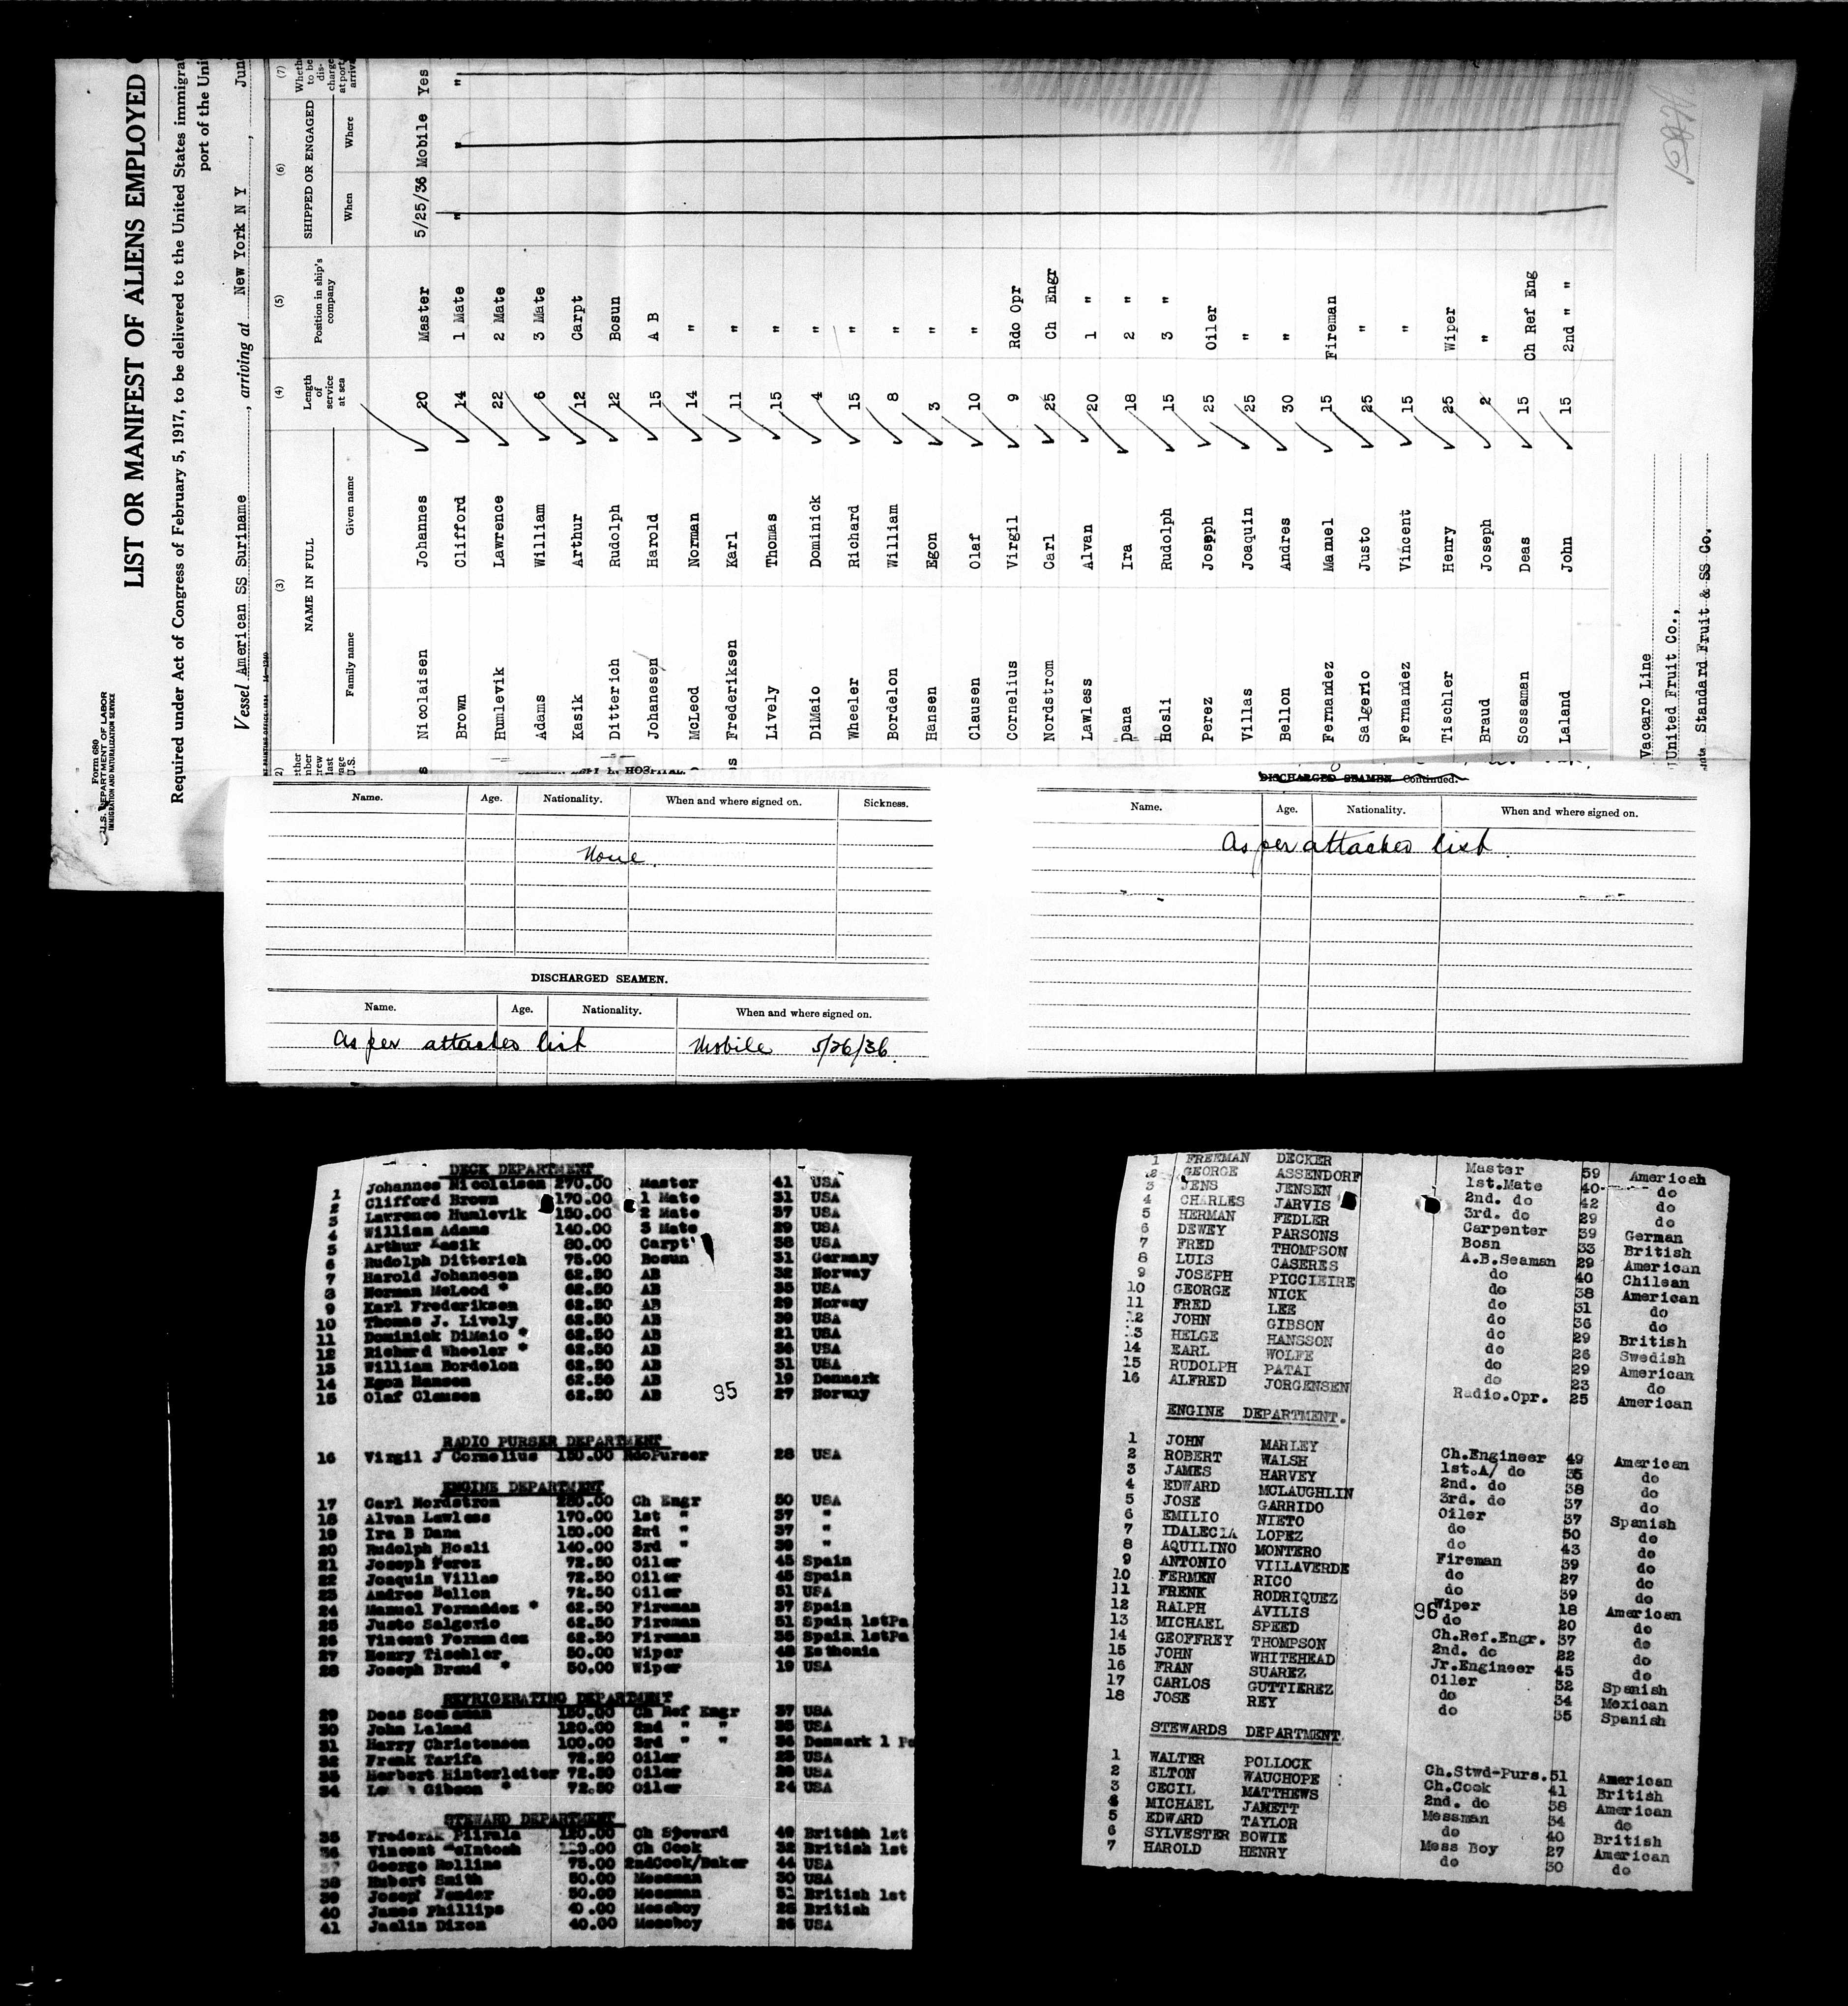 Form 680
U.S. DEPARTMENT OF LABOR
IMMIGRATION AND NATURALIZATION SERVICE
LIST OR MANIFEST OF ALIENS EMPLOYED
Required under Act of Congress of February 5, 1917, to be delivered to the United States immigrat
port of the Unit
Vessel American SS Suriname, arriving at New York N Y, June
(3) (4) (5) (6) (7)
NAME IN FULL Length of service at sea Position in ship's company SHIPPED OR ENGAGED
Family name Given name When Where
Nicolaisen Johannes 20 Master 5/25/36 Mobile Yes
Brown Clifford 14 1 Mate " " "
Humlevik Lawrence 22 2 Mate
Adams William 6 3 Mate
Kasik Arthur 12 Carpt
Ditterich Rudolph 12 Bosun
Johanesen Harold 15 A B
McLeod Norman 14 "
Frederiksen Karl 11 "
Lively Thomas 15 "
DiMaio Dominick 4 "
Wheeler Richard 15 "
Bordelon William 8 "
Hansen Egon 3 "
Clausen Olaf 10 "
Cornelius Virgil 9 Rdo Opr
Nordstrom Carl 25 Ch Engr
Lawless Alvan 20 1 "
Dana Ira 18 2 "
Hosli Rudolph 15 3 "
Perez Joseph 25 Oiler
Villas Joaquin 25 "
Bellon Andres 30 "
Fernandez Manuel 15 Fireman
Salgerio Justo 25 "
Fernandez Vincent 15 "
Tischler Henry 25 Wiper
Braud Joseph 2 "
Sossaman Deas 15 Ch Ref Eng
Laland John 15 2nd " "
Vacaro Line
United Fruit Co.,
Standard Fruit & SS Co.
Name. Age. Nationality. When and where signed on. Sickness.
None.
DISCHARGED SEAMEN.
Name. Age. Nationality. When and where signed on.
As per attached list Mobile 5/26/36.
DISCHARGED SEAMEN Continued.
Name. Age. Nationality. When and where signed on.
As per attached list.
DECK DEPARTMENT
1 Johannes Nicolaisen 270.00 Master 41 USA
2 Clifford Brown 170.00 1 Mate 31 USA
3 Lawrence Humlevik 150.00 2 Mate 37 USA
4 William Adams 140.00 3 Mate 29 USA
5 Arthur Kasik 80.00 Carpt 38 USA
6 Rudolph Ditterich 75.00 Bosun 31 Germany
7 Harold Johanesen 62.50 AB 32 Norway
8 Norman McLeod * 62.50 AB 35 USA
9 Karl Frederiksen 62.50 AB 29 Norway
10 Thomas J. Lively 62.50 AB 39 USA
11 Dominick DiMaio * 62.50 AB 21 USA
12 Richard Wheeler * 62.50 AB 36 USA
13 William Bordelon 62.50 AB 31 USA
14 Egon Hansen 62.50 AB 19 Denmark
15 Olaf Clausen 62.50 AB 27 Norway
95
RADIO PURSER DEPARTMENT
16 Virgil J Cornelius 150.00 RdoPurser 28 USA
ENGINE DEPARTMENT
17 Carl Nordstrom Ch Engr 50 USA
18 Alvan Lawless 170.00 1st " 37 "
19 Ira B Dana 150.00 2nd " 37 "
20 Rudolph Hosli 140.00 3rd " 39 "
21 Joseph Perez 72.50 Oiler 45 Spain
22 Joaquin Villas 72.50 Oiler 45 Spain
23 Andres Bellon 72.50 Oiler 51 USA
24 Manuel Fernandez * 62.50 Fireman 37 Spain
25 Justo Salgerio 62.50 Fireman 51 Spain 1stPa
26 Vincent Fernandez 62.50 Fireman 35 Spain 1stPa
27 Henry Tischler 50.00 Wiper 48 Esthonia
28 Joseph Braud * 50.00 Wiper 19 USA
REFRIGERATING DEPARTMENT
29 Deas Sossaman 150.00 Ch Ref Engr 37 USA
30 John Laland 120.00 2nd " " 35 USA
31 Harry Christensen 100.00 3rd " " 36 Denmark 1 Pa
32 Frank Tarifa 72.50 Oiler 23 USA
33 Herbert Hinterleiter 72.50 Oiler 29 USA
34 Gibson * 72.50 Oiler 24 USA
STEWARD DEPARTMENT
35 Frederik Ch Steward 49 British 1st
36 Vincent McIntosh Ch Cook 32 British 1st
37 George Rollins 75.00 2ndCook/Baker 44 USA
38 Hubert Smith 50.00 Messman 30 USA
39 Josep 50.00 Messman 51 British 1st
40 James Phillips 40.00 Messboy 25 British
41 Jaslin Dixon 40.00 Messboy 26 USA
1 FREEMAN DECKER Master 59 American
2 GEORGE ASSENDORF 1st.Mate 40 do
3 JENS JENSEN 2nd. do 42 do
4 CHARLES JARVIS 3rd. do 29 do
5 HERMAN FEDLER Carpenter 39 German
6 DEWEY PARSONS Bosn 33 British
7 FRED THOMPSON A.B.Seaman 29 American
8 LUIS CASERES do 40 Chilean
9 JOSEPH PICCIEIRE do 38 American
10 GEORGE NICK do 31 do
11 FRED LEE do 36 do
12 JOHN GIBSON do 29 British
13 HELGE HANSSON do 26 Swedish
14 EARL WOLFE do 29 American
15 RUDOLPH PATAI do 23 do
16 ALFRED JORGENSEN Radio.Opr. 25 American
ENGINE DEPARTMENT.
1 JOHN MARLEY Ch.Engineer 49 American
2 ROBERT WALSH 1st.A/ do 35 do
3 JAMES HARVEY 2nd. do 38 do
4 EDWARD MCLAUGHLIN 3rd. do 37 do
5 JOSE GARRIDO Oiler 37 Spanish
6 EMILIO NIETO do 50 do
7 IDALECIA LOPEZ do 43 do
8 AQUILINO MONTERO Fireman 39 do
9 ANTONIO VILLAVERDE do 27 do
10 FERMEN RICO do 39 do
11 FRENK RODRIQUEZ Wiper 18 American
12 RALPH AVILIS do 20 do
13 MICHAEL SPEED Ch.Ref.Engr. 37 do
14 GEOFFREY THOMPSON 2nd. do 22 do
15 JOHN WHITEHEAD Jr.Engineer 45 do
16 FRAN SUAREZ Oiler 32 Spanish
17 CARLOS GUTTIEREZ do 34 Mexican
18 JOSE REY do 35 Spanish
96
STEWARDS DEPARTMENT
1 WALTER POLLOCK Ch.Stwd-Purs. 51 American
2 ELTON WAUCHOPE Ch.Cook 41 British
3 CECIL MATTHEWS 2nd. do 38 American
4 MICHAEL JANETT Messman 34 do
5 EDWARD TAYLOR do 40 British
6 SYLVESTER BOWIE Mess Boy 27 American
7 HAROLD HENRY do 30 do